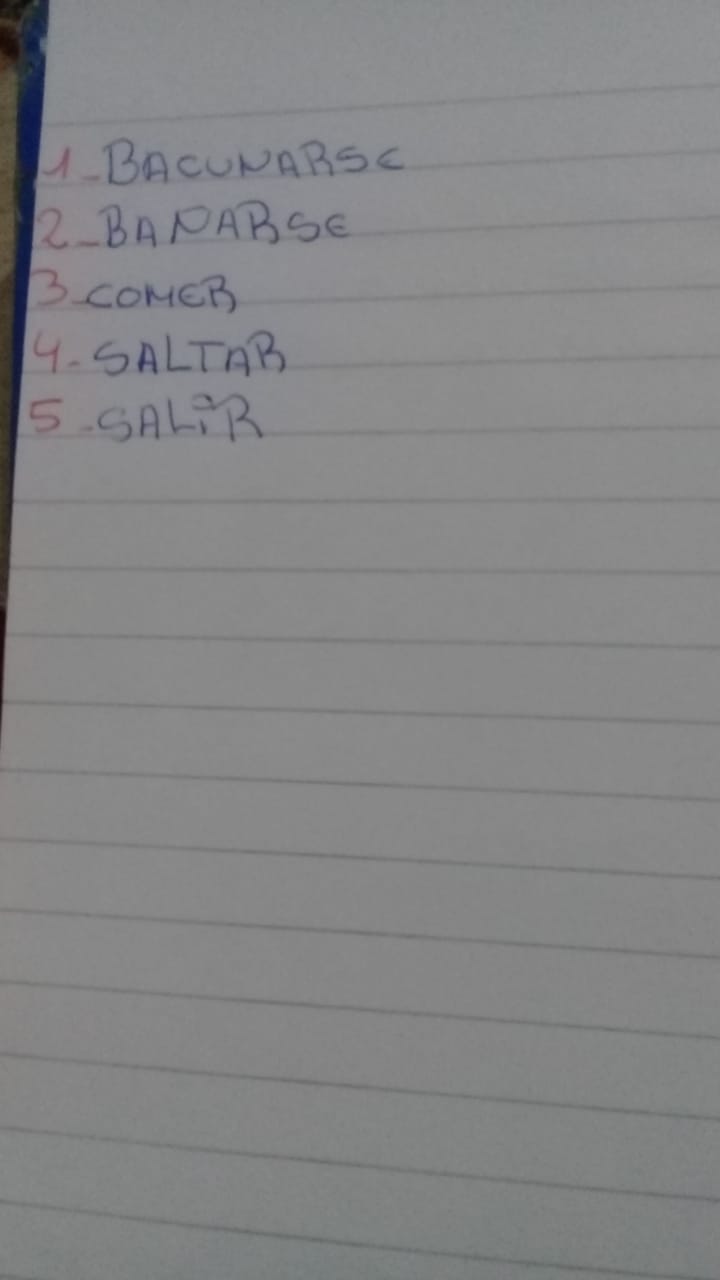 1-BACUNARSE
2-BANARSE
3-COMER
4-SALTAR
5-SALIR